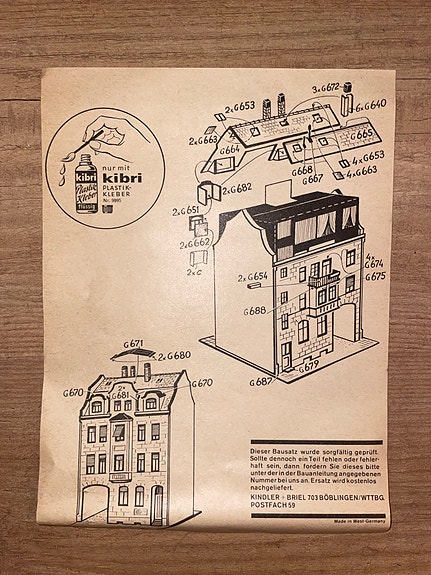 nur mit
kibri
PLASTIK-
KLEBER
Nr. 9995
kibri
Plastik
Kleber
flüssig
2×G653
3×G672
6×G640
2×G663
G664
G665
G668
G667
4×G653
4×G663
2×G682
2×G651
2×G662
2×C
2×G654
G688
4×
G674
G675
G679
G687
G671
2×G680
G670
2×
G681
G670
Dieser Bausatz wurde sorgfältig geprüft.
Sollte dennoch ein Teil fehlen oder fehler-
haft sein, dann fordern Sie dieses bitte
unter der in der Bauanleitung angegebenen
Nummer bei uns an. Ersatz wird kostenlos
nachgeliefert.
KINDLER + BRIEL 703 BÖBLINGEN/WTTBG.
POSTFACH 59
Made in West-Germany